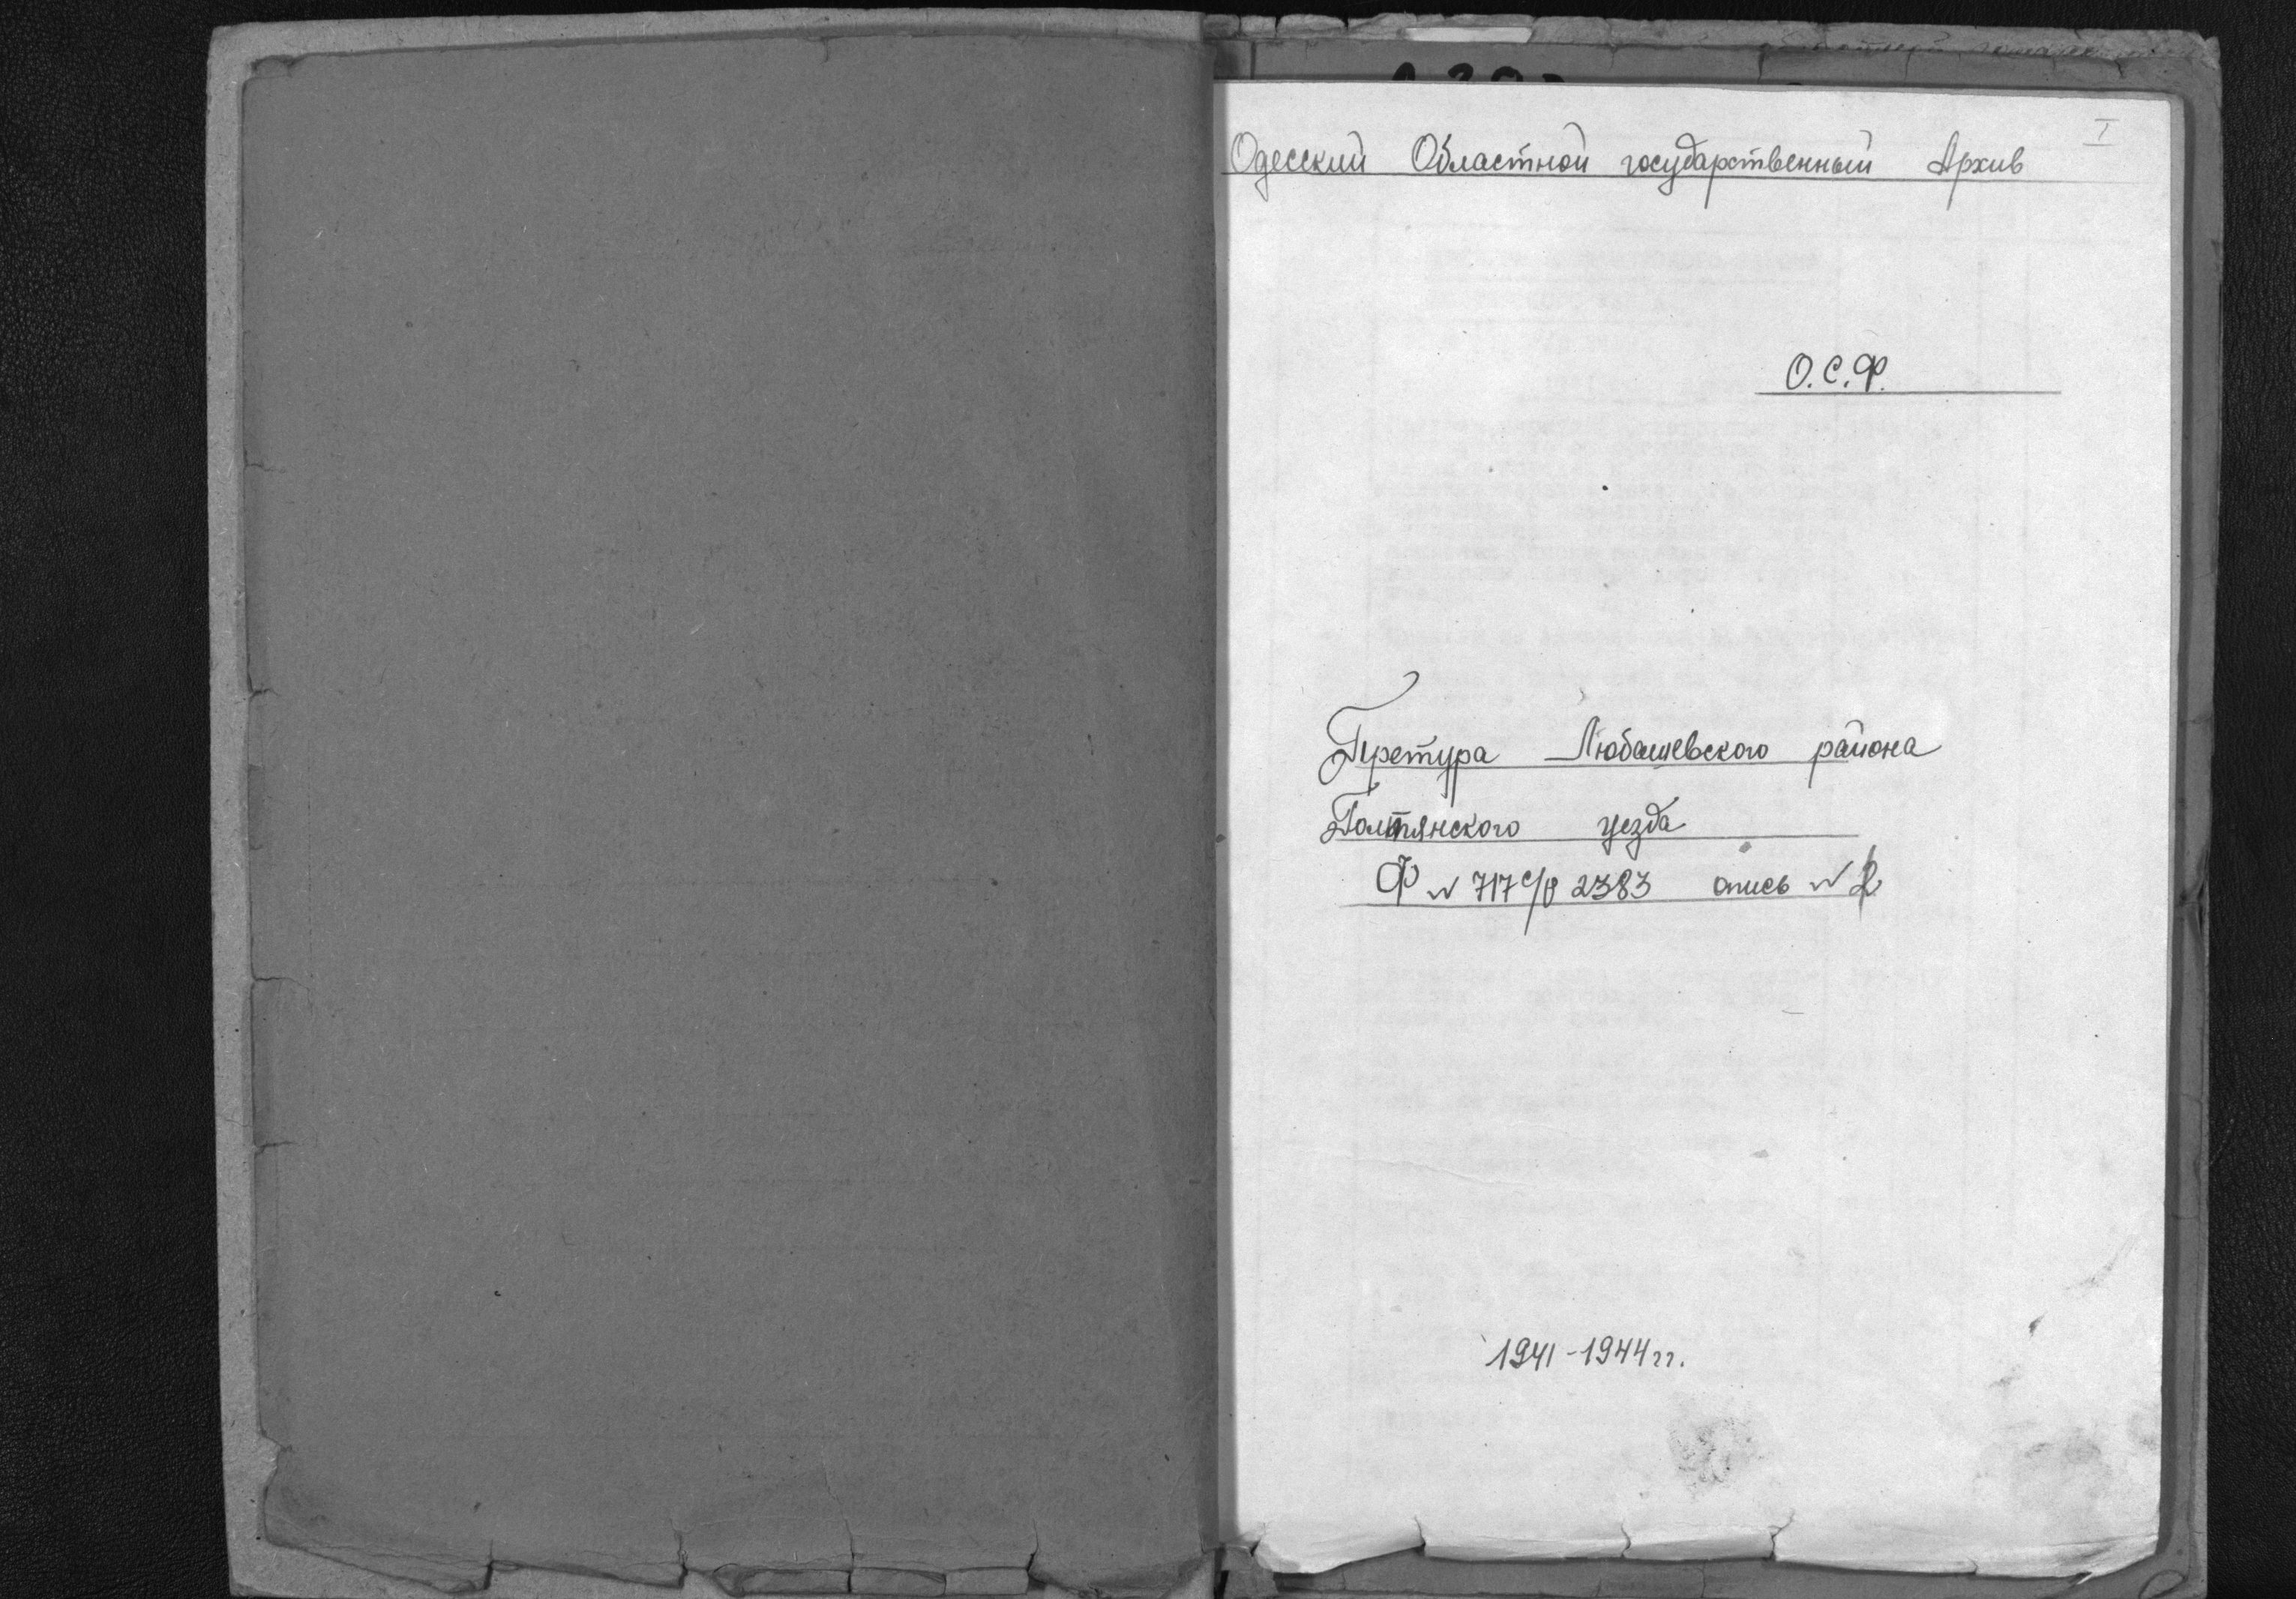 I
Одесский Областной государственный Архив
О.С.Ф.
Претура Любашевского района
Голтянского уезда
Ф № 717 с/Р 2383 опись № 2
1941-1944 гг.